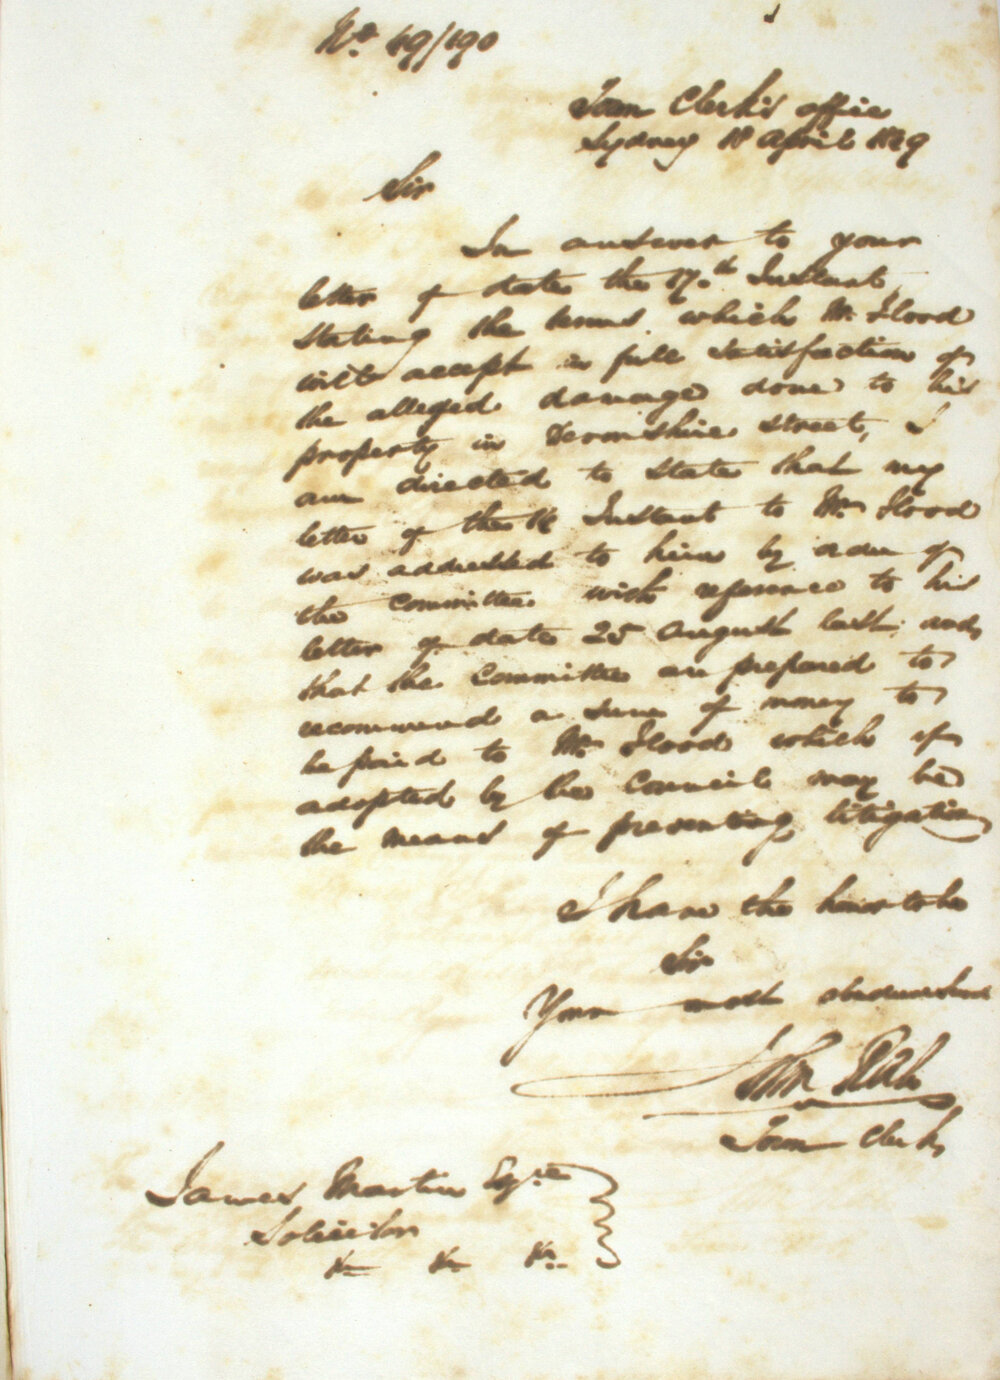 No. 49/190
Town Clerk's office
Sydney 18 April 1849
Sir
In answer to your
letter of date the 17.th Instant,
stating the terms which Mr. Flood
will accept in full satisfaction of
the alleged damage done to his
property in Devonshire street, I
am directed to state that my
letter of the Instant to Mr. Flood
was addressed to him by order of
the Committee with reference to his
letter of date 25 August last, and
that the Committee are prepared to
recommend a sum of money to
be paid to Mr. Flood which if
adopted by the Council may be
the means of preventing litigation
I have the honor to be
Sir
Your most obedient Serv
John Rae
Town Clerk
James Martin Esqre
Solicitor
&c &c &c.